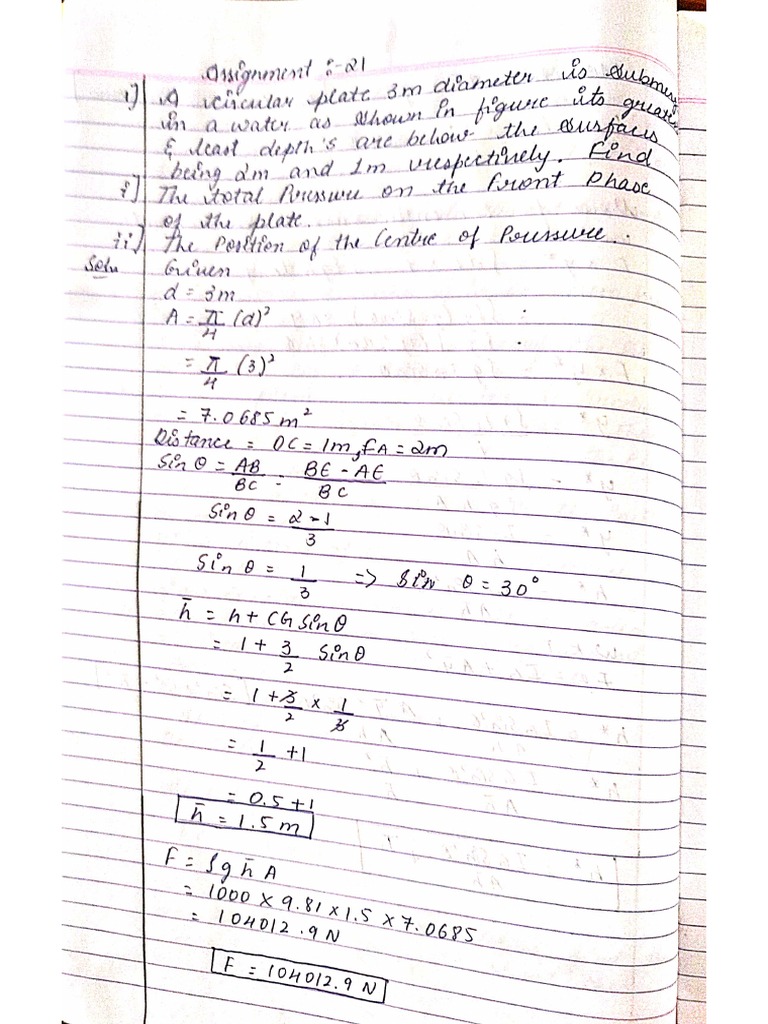 Assignment :- 21
i) A circular plate 3m diameter is submerg
in a water as shown in figure its greates
& least depth's are below the surfaces
being 2m and 1m respectively. Find
i] The total Pressure on the Front Phase
of the plate.
ii] The Position of the Centre of Pressure.
Soln Given
d = 3m
A = π/4 (d)²
= π/4 (3)²
= 7.0685 m²
Distance = OC = 1m, FA = 2m
Sin θ = AB/BC = BE - AE/BC
Sin θ = 2-1/3
Sin θ = 1/3 => Sin θ = 30°
h̄ = h + CG Sin θ
= 1 + 3/2 Sin θ
= 1 + 3/2 × 1/3
= 1/2 + 1
= 0.5 + 1
h̄ = 1.5 m
F = ρg h̄ A
= 1000 × 9.81 × 1.5 × 7.0685
= 104012.9 N
F = 104012.9 N